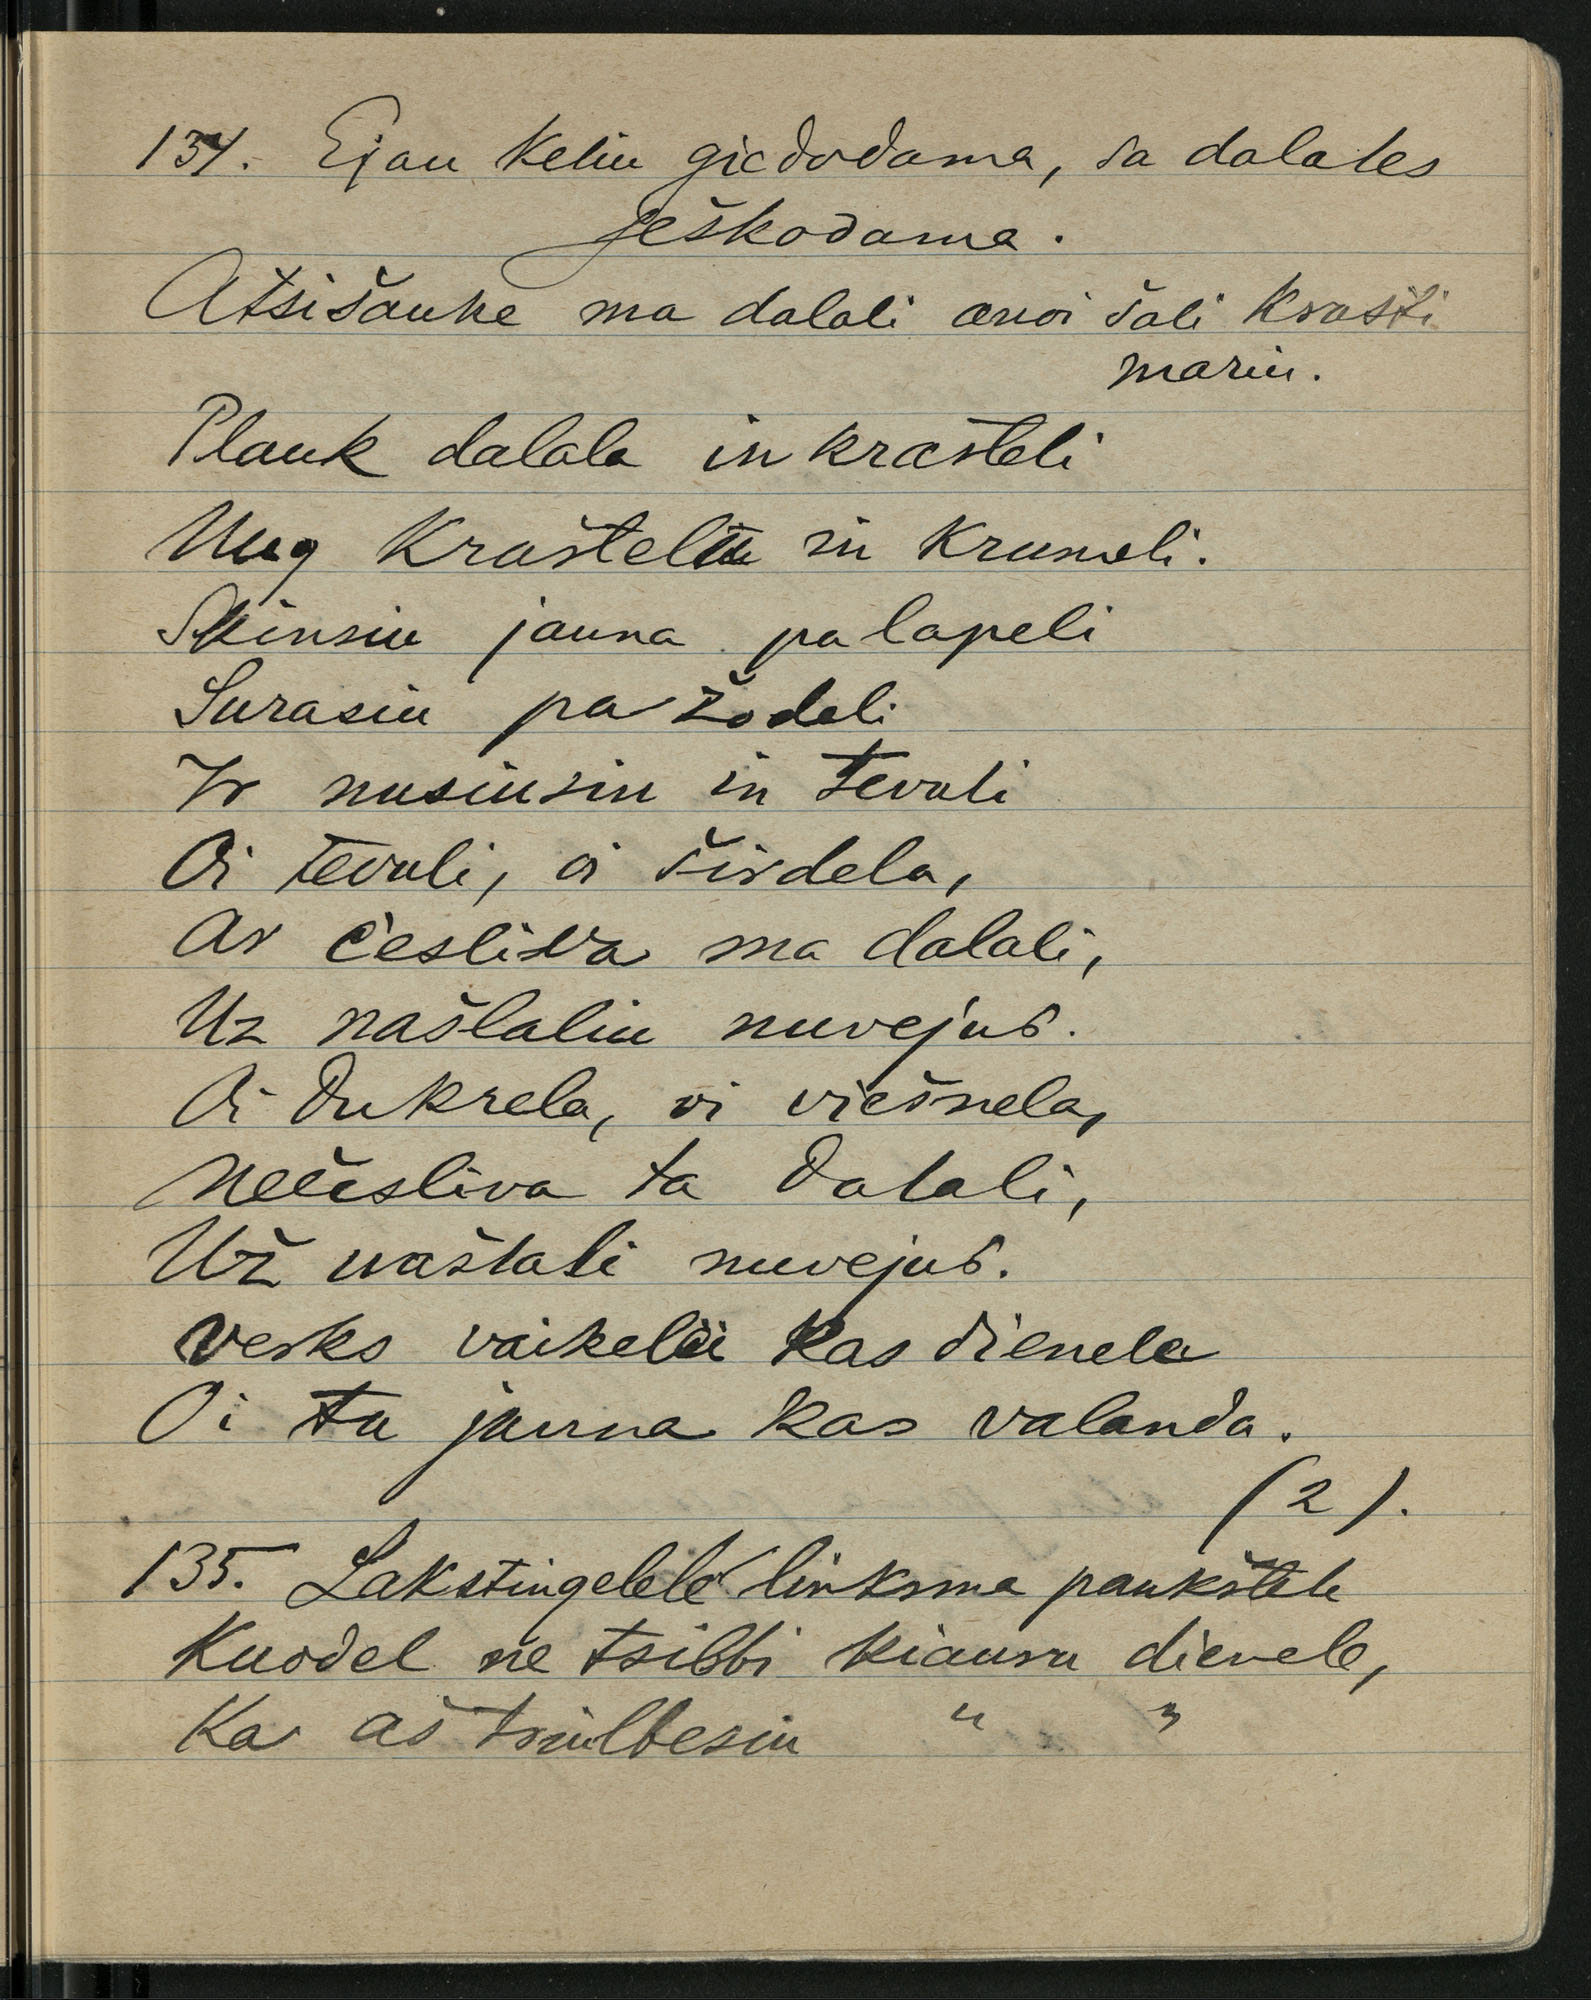 134. Ejau keliu giedodama, sa dalales
ješkodama.
Atsišauke ma dalali anoi šali krašti
mariu.
Plauk dalala in krašteli
Nug kraštelia in krumeli.
Skinsiu jauna pa lapeli
Surasiu pa žodeli
Ir nusiusiu in tevuli
Oi tevuli, oi širdela,
Ar česliva ma dalali,
Uz našlaliu nuvejus.
Oi dukrela, oi viešnela,
Nečesliva ta dalali,
Už našlali nuvejus.
Verks vaikelei kas dienela
Oi tu jauna kas valanda.
(2).
135. Lakstingelele linksma paukštele
Kuodel ne tsilbi kiaura dienele,
Ka aš tsiulbesiu " "